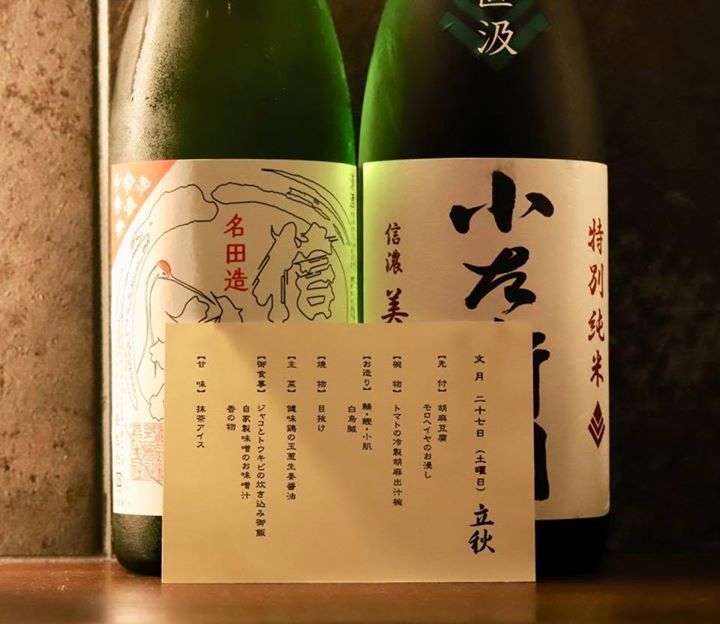 汲
特別純米
小左
信濃 美
名田造
文月 二十七日 (土曜日) 立秋
【先 付】胡麻豆腐
モロヘイヤのお浸し
【椀 物】トマトの冷製胡麻出汁椀
【お造り】・鰹・小肌
白烏賊
【焼 物】目抜け
【主 菜】健味鶏の玉葱生姜醤油
【御食事】ジャコとトウキビの炊き込み御飯
自家製味噌のお味噌汁
香の物
【甘 味】抹茶アイス